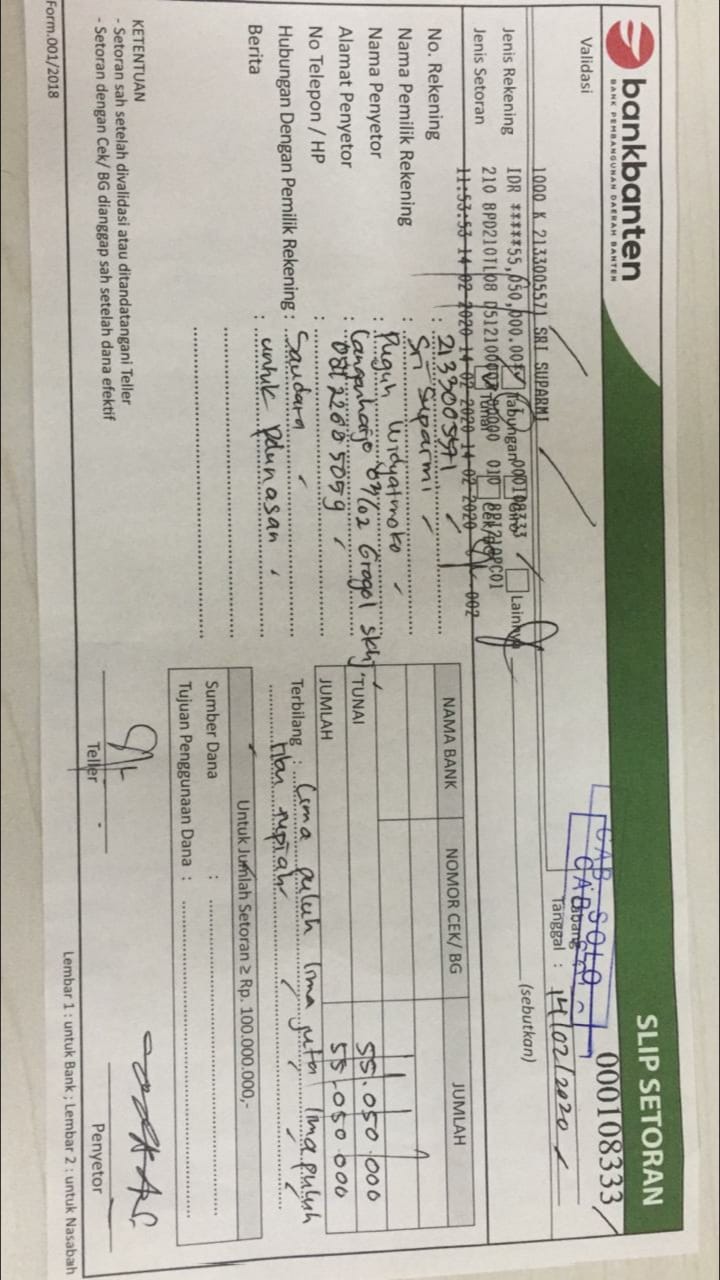 bankbanten
BANK PEMBANGUNAN DAERAH BANTEN
SLIP SETORAN
000108333
Validasi
CAB. SOLO
Cabang
Tanggal : 14/02/2020
1000 K 2133005571 SRI SUPARMI
IDR *****55,050,000.00 000108333
Jenis Rekening Tabungan Giro Lainnya (sebutkan)
210 BPD210TL08 010
Jenis Setoran Tunai Cek/BG
11:53:53 14-02-2020 14-02-2020 14-02-2020 002
No. Rekening : 2133005571
Nama Pemilik Rekening : Sri Suparmi
Nama Penyetor : Puguh Widyatmoko
Alamat Penyetor : 03/02 Grogol skh
No Telepon / HP :
Hubungan Dengan Pemilik Rekening : Saudara
Berita : untuk pelunasan
NAMA BANK NOMOR CEK/ BG JUMLAH
TUNAI 55.050.000
JUMLAH 55.050.000
Terbilang : lima puluh lima juta lima puluh
ribu rupiah
Untuk Jumlah Setoran ≥ Rp. 100.000.000,-
Sumber Dana :
Tujuan Penggunaan Dana :
KETENTUAN
- Setoran sah setelah divalidasi atau ditandatangani Teller
- Setoran dengan Cek/ BG dianggap sah setelah dana efektif
Teller
Penyetor
Form.001/2018
Lembar 1 : untuk Bank ; Lembar 2 : untuk Nasabah